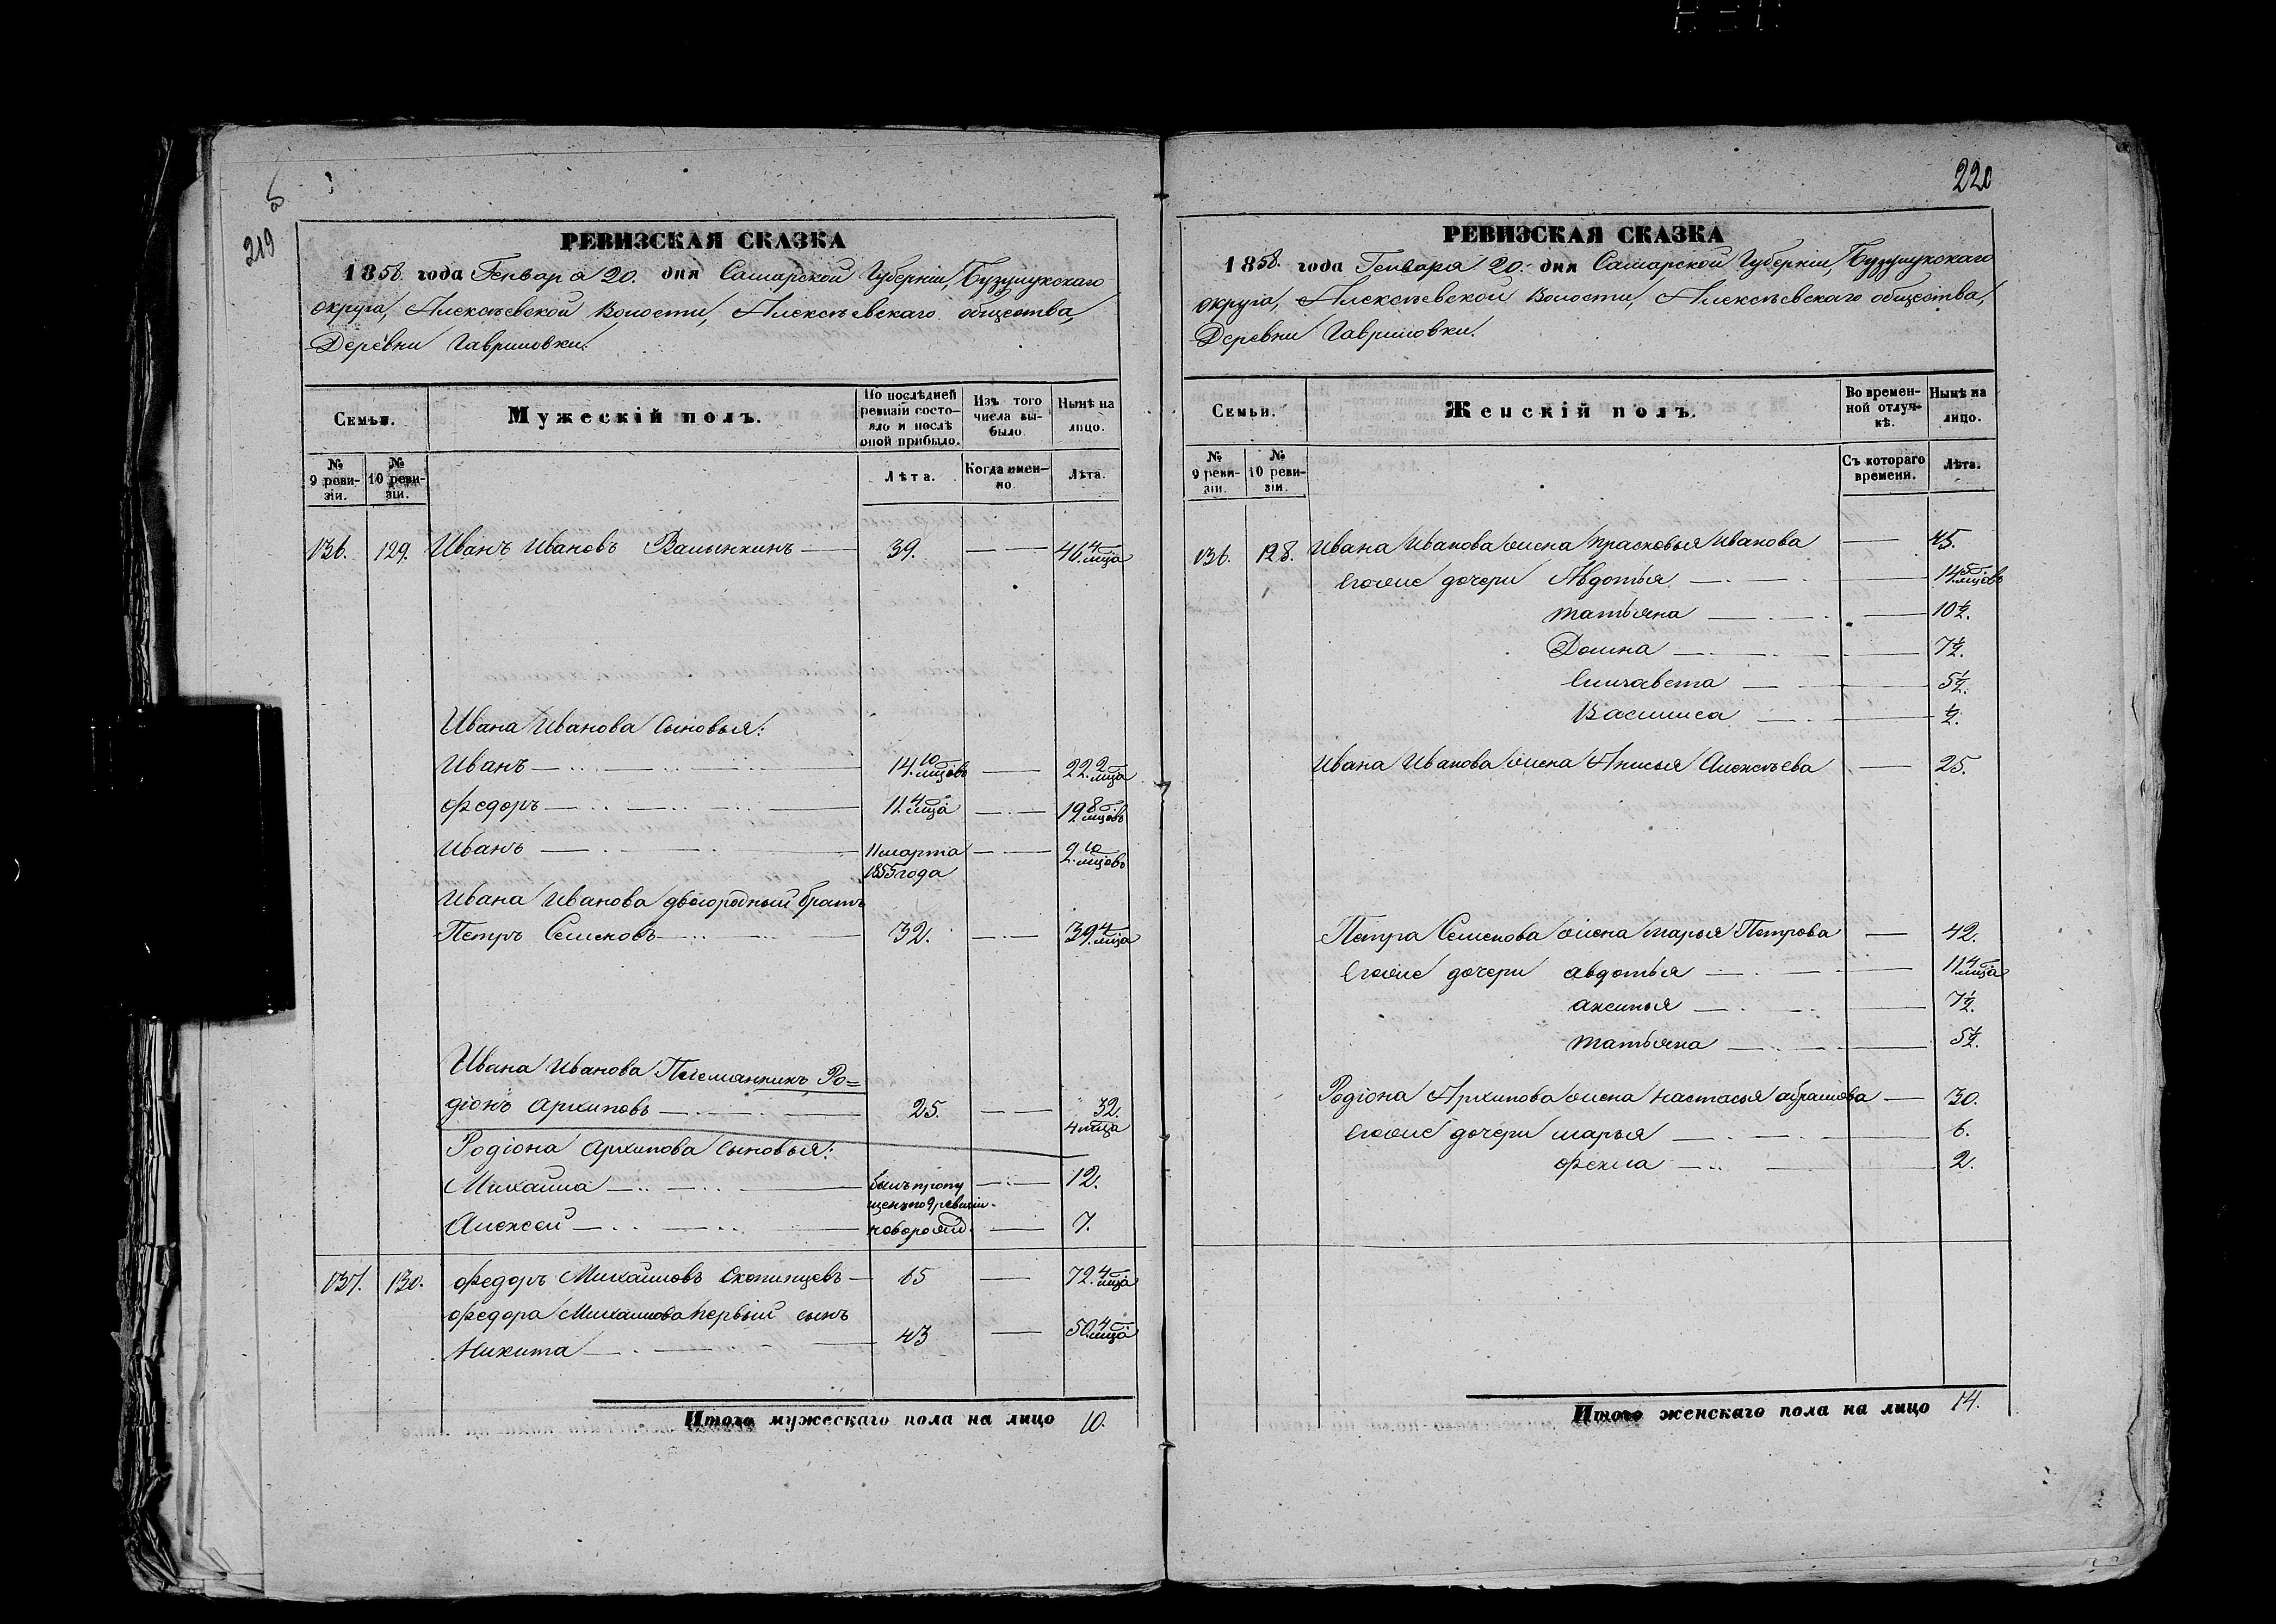 219
РЕВИЗСКАЯ СКАЗКА
1858. года Генваря 20. дня Самарской Губерніи, Бузулукскаго
округа, Алексѣевской Волости, Алексѣевскаго общества,
Деревни Гавриловки.
Семьи.
Мужескій полъ.
По послѣдней ревизіи состояло и послѣ оной прибыло.
Изъ того числа выбыло.
Нынѣ на лицо.
№ 9 ревизіи.
№ 10 ревизіи.
Лѣта.
Когда именно
Лѣта.
136. 129. Иванъ Ивановъ 39. 46. 4 мца
Ивана Иванова сыновья:
Иванъ 14. 10 мцовъ 22. 2 мца
Федоръ 11. 4 мца 19 8 мцовъ
Иванъ 11 марта 1855 года 2. 10 мцовъ
Ивана Иванова двоюродный братъ
Петръ Семеновъ 32. 39. 4 мца
Ивана Иванова Племянникъ Ро=
діонъ Архиповъ 25. 32. 4 мца
Родіона Архипова сыновья:
Михайла былъ пропущенъ по 9 ревизіи 12.
Алексей новорожд. 7.
137. 130. Федоръ Михайловъ Скопинцевъ 65 72. 4 мца
Федора Михайлова первый сынъ
Никита 43 50. 4 мца
Итого мужескаго пола на лицо 10.
220
РЕВИЗСКАЯ СКАЗКА
1858. года Генваря 20. дня Самарской Губерніи, Бузулукскаго
округа, Алексѣевской Волости, Алексѣевскаго общества,
Деревни Гавриловки.
Семьи.
Женскій полъ.
Во временной отлучкѣ.
Нынѣ на лицо.
№ 9 ревизіи.
№ 10 ревизіи.
Съ котораго времени.
Лѣта.
136. 128. Ивана Иванова жена Прасковья Иванова 45.
Егоже дочери Авдотья 14.
Татьяна 10 1/2.
Домна 7 1/2.
Елизавета 5 1/2.
Василиса 1/2.
Ивана Иванова жена Анисья Алексѣева 25.
Петра Семенова жена Марья Петрова 42.
Егоже дочери Авдотья 11. 4 мца
Аксинья 7 1/2.
Татьяна 5 1/2.
Родіона Архипова жена Настасья Абрамова 30.
Егоже дочери Марья 6.
Фекла 2.
Итого женскаго пола на лицо 14.